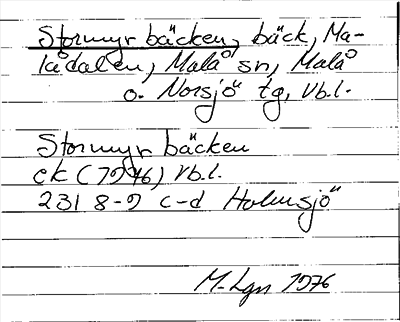 Stormyrbäcken, bäck, Ma-
lådalen, Malå sn, Malå
o. Norsjö tg, Vb.l.
Stormyrbäcken
ek (1946) Vb.l.
231 8-9 c-d Holmsjö
M-Lgn 1976